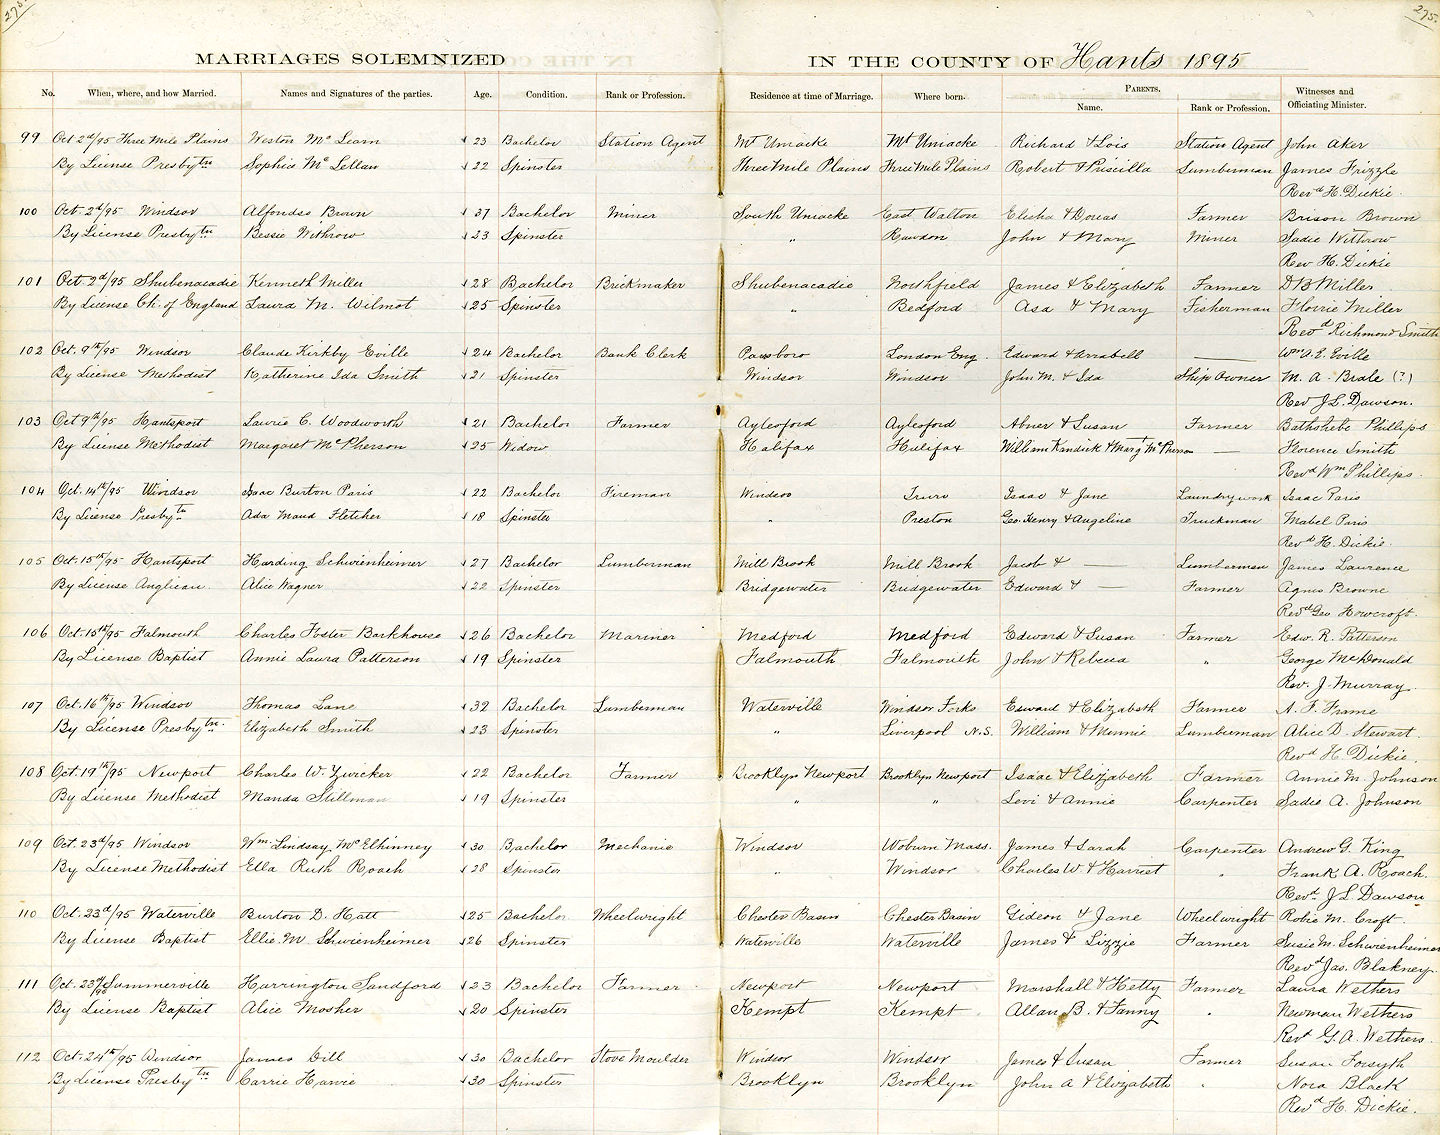 275. 275.
MARRIAGES SOLEMNIZED IN THE COUNTY OF Hants 1895
No. When, where, and how Married. Names and Signatures of the parties. Age. Condition. Rank or Profession. Residence at time of Marriage. Where born. PARENTS. Name. Rank or Profession. Witnesses and Officiating Minister.
99 Oct 2d/95 Three Mile Plains Weston McLearn 23 Bachelor Station Agent Mt Uniacke Mt Uniacke Richard & Lois Station Agent John Aker
By License Presbytn Sophia McLellan 22 Spinster Three Mile Plains Three Mile Plains Robert & Priscilla Lumberman James Frizzle
Revd H. Dickie
100 Oct. 2d/95 Windsor Alfondso Brown 37 Bachelor Miner South Uniacke East Walton Elisha & Dorcas Farmer Brison Brown
By License Presbytn Bessie Withrow 23 Spinster " Rawdon John & Mary Miner Sadie Withrow
Rev H. Dickie
101 Oct. 2d/95 Shubenacadie Kenneth Miller 28 Bachelor Brickmaker Shubenacadie Northfield James & Elizabeth Farmer D B Miller
By License Ch. of England Laura M. Wilmot 25 Spinster " Bedford Asa & Mary Fisherman Florrie Miller
Revd Richmond Smith
102 Oct. 9th/95 Windsor Claude Kirkby Eville 24 Bachelor Bank Clerk Parrsboro London Eng. Edward & Arrabell — Wm A. E. Eville
By License Methodist Katherine Ida Smith 21 Spinster Windsor Windsor John M. & Ida Ship Owner M. A. Brale (?)
Rev J. L. Dawson.
103 Oct 9th/95 Hantsport Laurie C. Woodworth 21 Bachelor Farmer Aylesford Aylesford Abner & Susan Farmer Bathsheba Phillips
By License Methodist Margaret McPherson 25 Widow Halifax Halifax William Kendick & Margt McPherson — Florence Smith
Revd Wm Phillips.
104 Oct. 14th/95 Windsor Isaac Burton Paris 22 Bachelor Fireman Windsor Truro Isaac & Jane Laundrywork Isaac Paris
By License Presbytn Ada Maud Fletcher 18 Spinster " Preston Geo. Henry & Angeline Truckman Mabel Paris
Revd H. Dickie.
105 Oct. 15th/95 Hantsport Harding Schwienheimer 27 Bachelor Lumberman Mill Brook Mill Brook Jacob & — Lumberman James Laurence
By License Anglican Alice Wagner 22 Spinster Bridgewater Bridgewater Edward & — Farmer Agnes Browne
Revd Geo. Howcroft.
106 Oct. 15th/95 Falmouth Charles Foster Barkhouse 26 Bachelor Mariner Medford Medford Edward & Susan Farmer Edw. R. Patterson
By License Baptist Annie Laura Patterson 19 Spinster Falmouth Falmouth John & Rebecca " George McDonald
Rev. J. Murray.
107 Oct. 16th/95 Windsor Thomas Lane 32 Bachelor Lumberman Waterville Windsor Forks Edward & Elizabeth Farmer A. F. Frame
By License Presbytn. Elizabeth Smith 23 Spinster " Liverpool N.S. William & Minnie Lumberman Alice D. Stewart.
Revd H. Dickie.
108 Oct. 19th/95 Newport Charles W. Zwicker 22 Bachelor Farmer Brooklyn Newport Brooklyn Newport Isaac & Elizabeth Farmer Annie M. Johnson
By License Methodist Manda Stillman 19 Spinster " " Levi & Annie Carpenter Sadie A. Johnson
109 Oct. 23d/95 Windsor Wm. Lindsay McElhinney 30 Bachelor Mechanic Windsor Woburn Mass. James & Sarah Carpenter Andrew G. King
By License Methodist Ella Ruth Roach 28 Spinster " Windsor Charles W. & Harriet " Frank A. Roach.
Revd. J L Dawson
110 Oct. 23d/95 Waterville Burton D. Hatt 25 Bachelor Wheelwright Chester Basin Chester Basin Gideon & Jane Wheelwright Robie M. Croft.
By License Baptist Ellie M. Schwienheimer 26 Spinster Waterville Waterville James & Lizzie Farmer Susie M. Schwienheimer
Revd Jas. Blakney.
111 Oct. 23d/95 Summerville Harrington Sandford 23 Bachelor Farmer Newport Newport Marshall & Hetty Farmer Laura Wethers
By License Baptist Alice Mosher 20 Spinster Kempt Kempt Allan B. & Fanny " Newman Wethers
Revd G. A. Wethers.
112 Oct. 24th/95 Windsor James Dill 30 Bachelor Stove Moulder Windsor Windsor James & Susan Farmer Susan Forsyth
By License Presbytn Carrie Harvie 30 Spinster Brooklyn Brooklyn John A & Elizabeth " Nora Black
Revd H. Dickie.